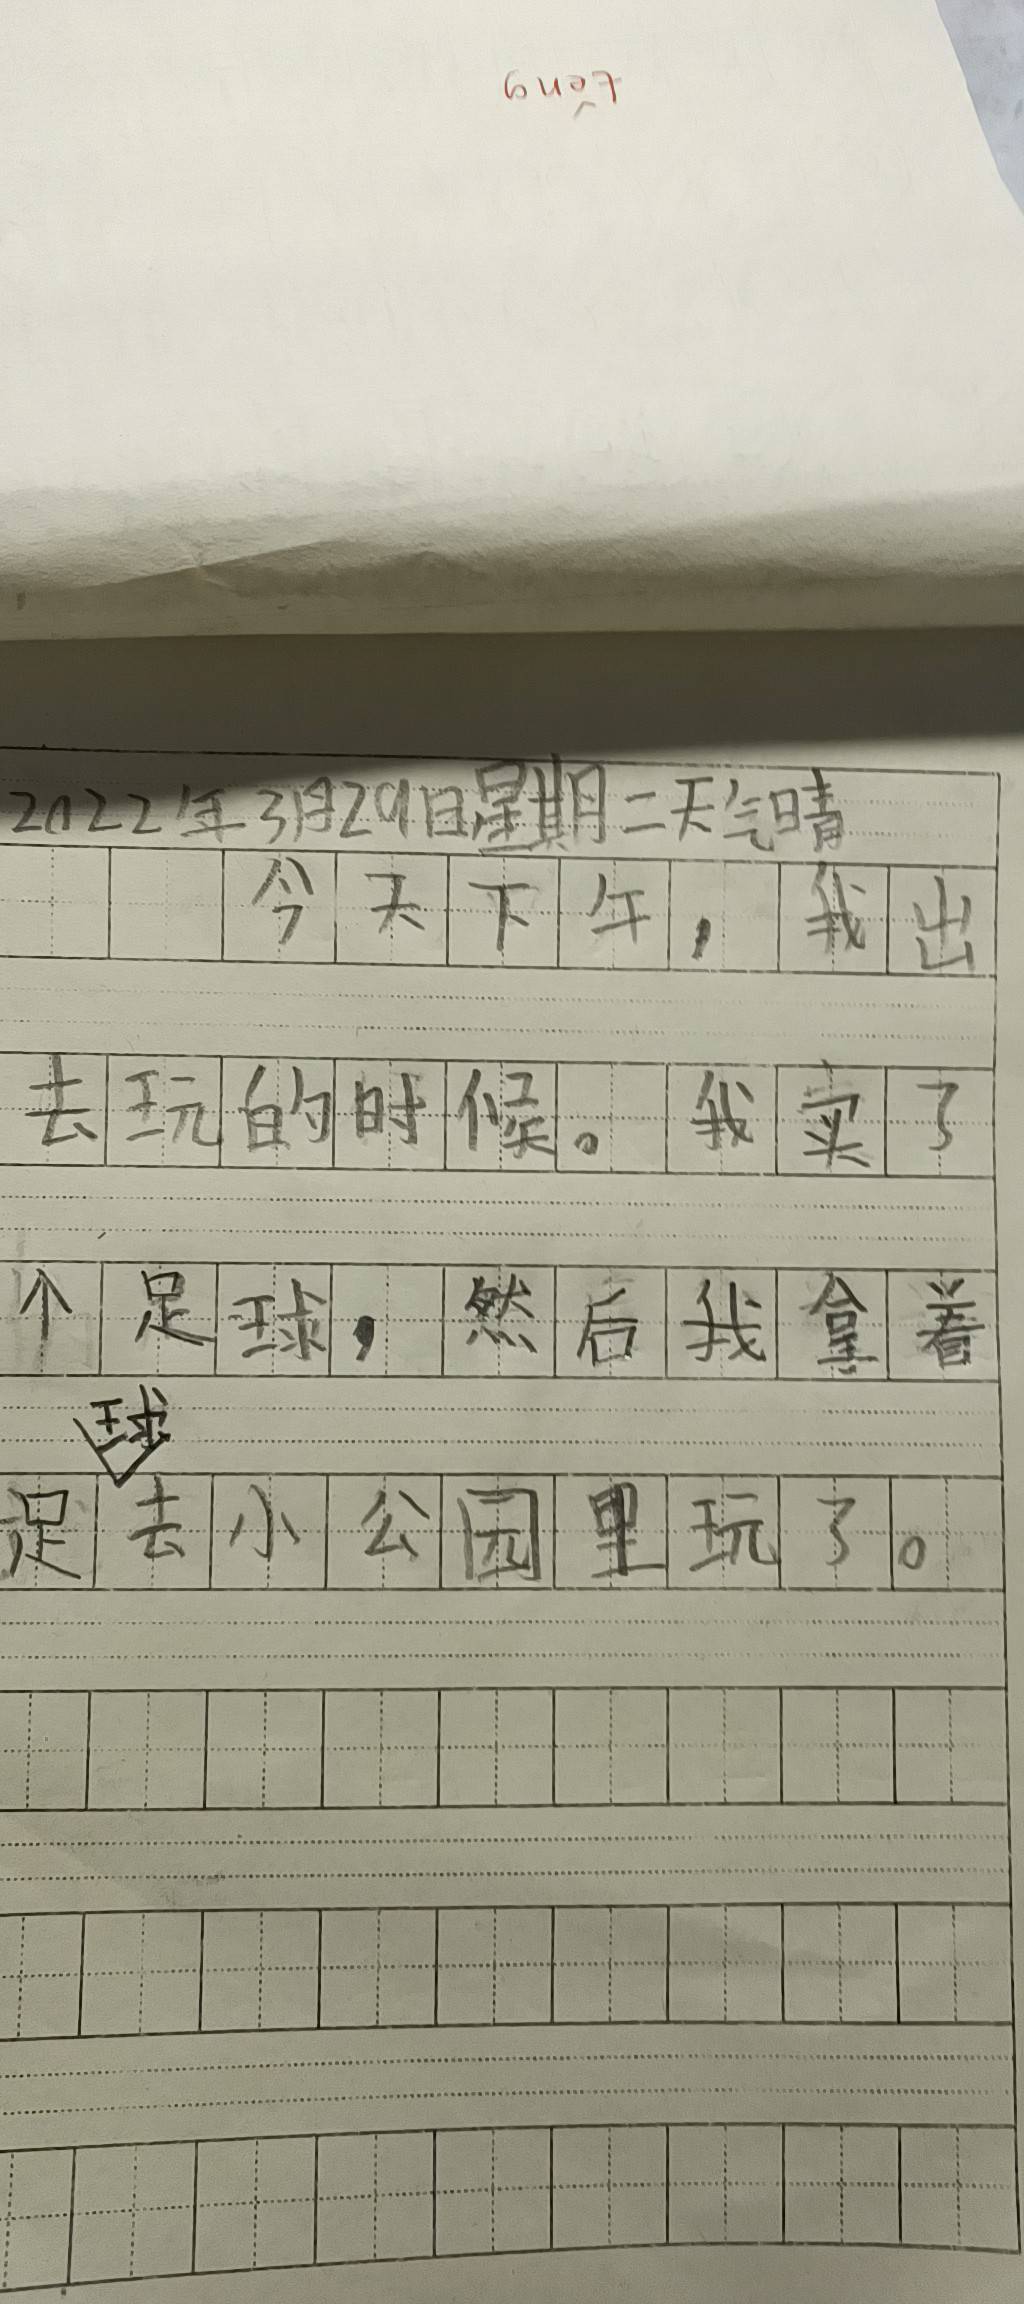 téng
2022年3月29日星期二天气晴
今天下午，我出
去玩的时候。我买了
个足球，然后我拿着
足球去小公园里玩了。